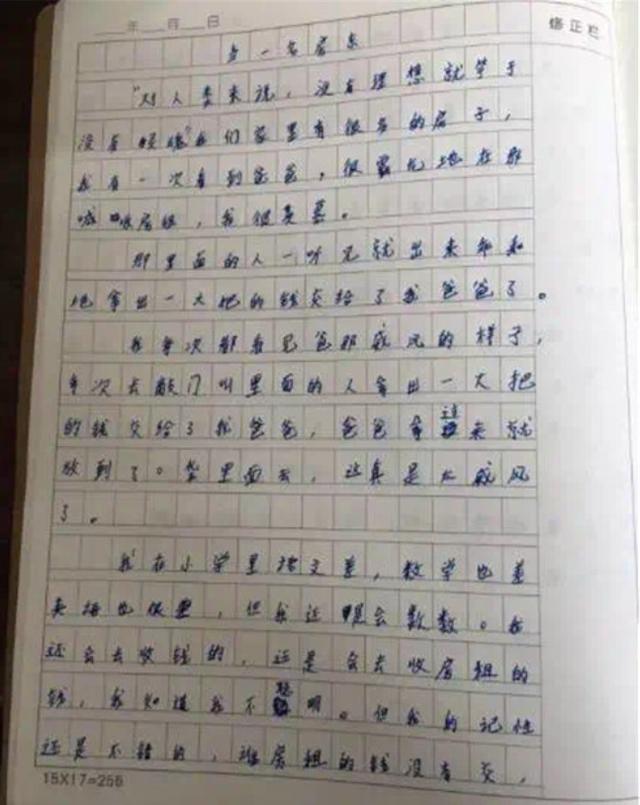 年 月 日
修正栏
当一名房东
"对人类来说，没有理想就等于
没有灵魂"我们家里有很多的房子，
我有一次看到爸爸，很霸气地在那
喊收房租，我很羡慕。
那里面的人一听见就出来乖乖
地拿出一大把的钱交给了我爸爸了。
我每次都看见爸那威风的样子，
每次去敲门叫里面的人拿出一大把
的钱交给了我爸爸，爸爸拿过来就
放到了口袋里面去，这真是太威风
了。
我在小学里语文差，数学也差
英语也很差，但我还是会数数。我
还会去收钱的，还是会去收房租的
钱，我知道我不聪明。但我的记性
还是不错的，谁房租的钱没有交，
15X17=255